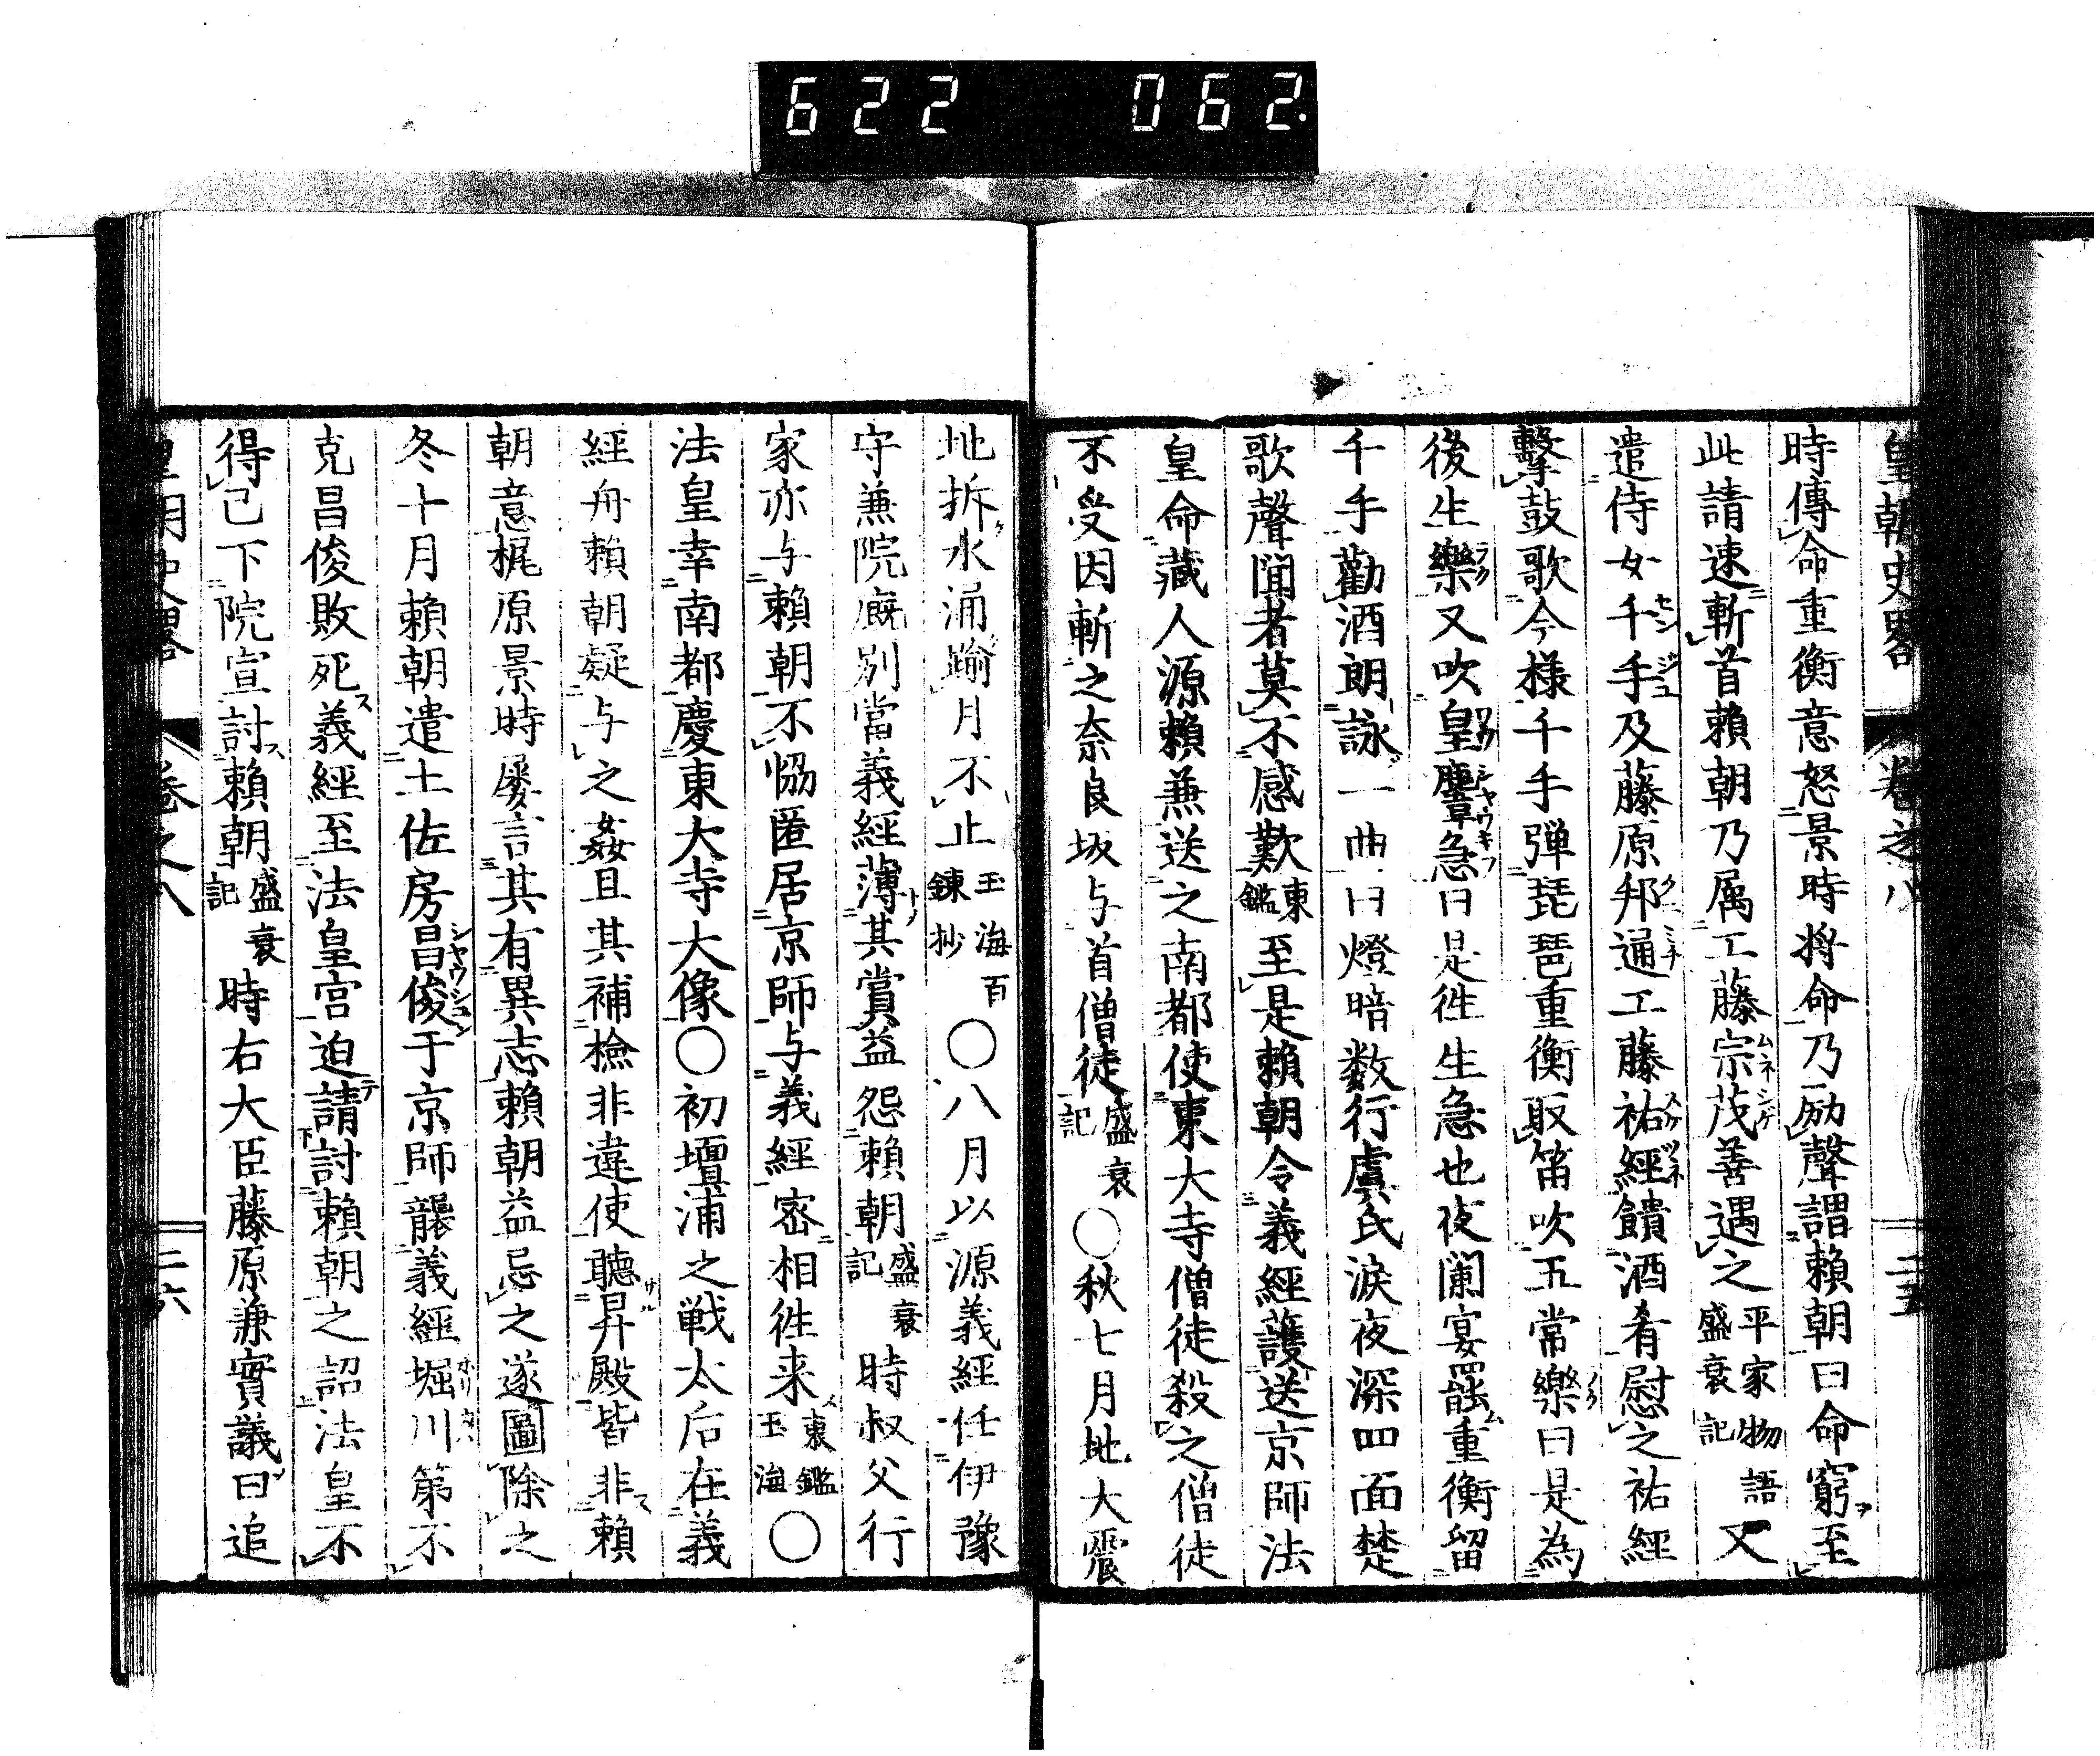 622 062.
皇朝史畧 卷之八 二五
時傳命重衡意怒景時將命乃励聲謂賴朝曰命窮至
此請速斬首賴朝乃属工藤宗茂善遇之平家物語盛衰記又
遣侍女千手及藤原邦通工藤祐經饋酒肴慰之祐經
擊鼓歌今様千手弾琵琶重衡取笛吹五常樂曰是為
後生樂又吹皇麞急曰是徃生急也夜闌宴罷重衡留
千手勸酒朗詠一曲曰燈暗数行虞氏淚夜深四面楚
歌聲聞者莫不感歎東鑑至是賴朝令義經護送京師法
皇命藏人源賴兼送之南都使東大寺僧徒殺之僧徒
不受因斬之奈良坂与首僧徒盛衰記○秋七月地大震
地拆水涌踰月不止玉海百錬抄○八月以源義經任伊豫
守兼院廐別當義經薄其賞益怨賴朝盛衰記時叔父行
家亦与賴朝不恊匿居京師与義經密相徃来東鑑玉海○
法皇幸南都慶東大寺大像○初壇浦之戦太后在義
經舟賴朝疑与之姦且其補檢非違使聽昇殿皆非賴
朝意梶原景時屡言其有異志賴朝益忌之遂圖除之
冬十月賴朝遣土佐房昌俊于京師襲義經堀川第不
克昌俊敗死義經至法皇宮迫請討賴朝之詔法皇不
得已下院宣討賴朝盛衰記時右大臣藤原兼實議曰追
皇朝史畧 卷之八 二六